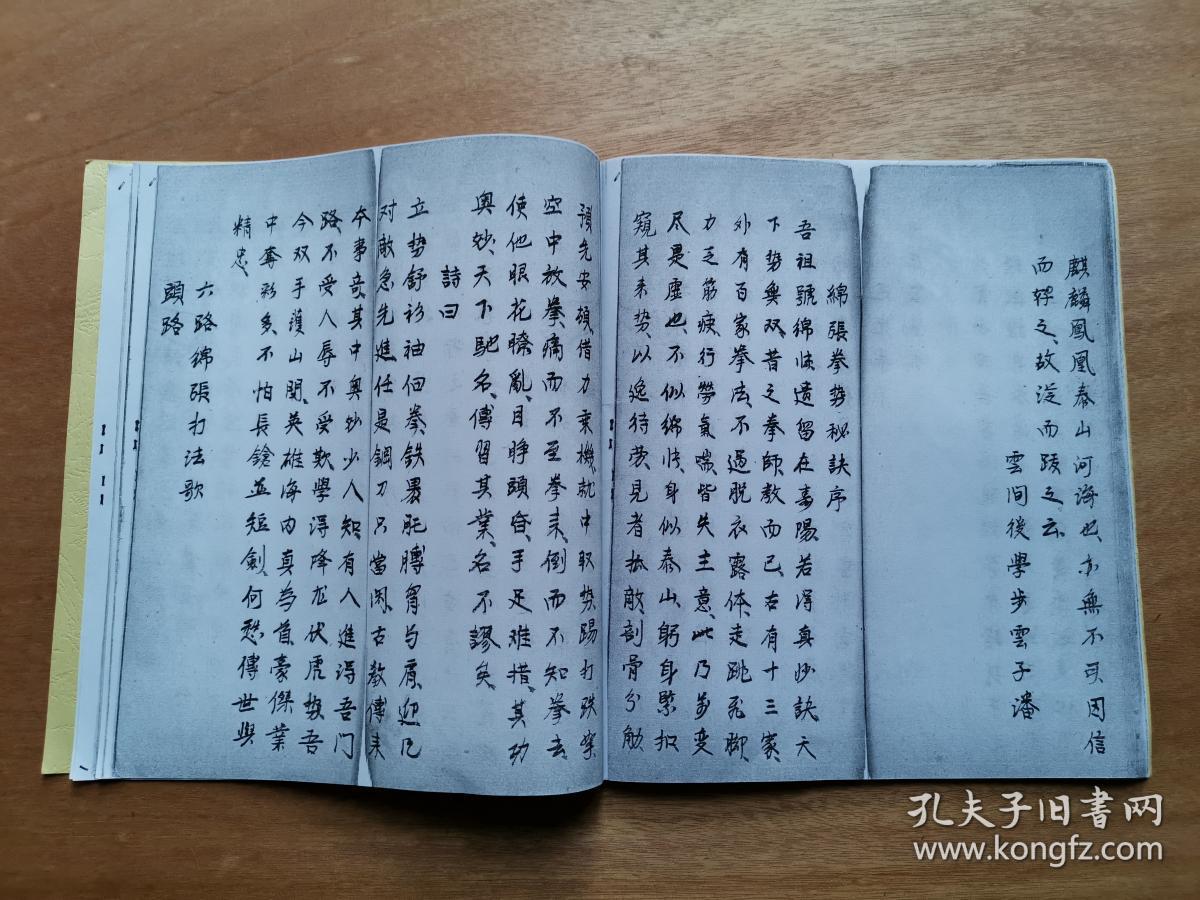 麒麟鳳凰泰山河海也、亦無不可因信
而好之、故從而跋之云、
雲間後學步雲子潘
綿張拳势秘訣序
吾祖號綿快遺留在壽陽、若得真妙訣天
下势無双、昔之拳師教而已、右有十三家、
外有百家拳法、不過脱衣露体、走跳飛脚、
力乏筋疲、行勞氣喘、皆失主意、此乃萬变
尽是虚也、不似綿快、身似泰山、躬身緊扣
窺其来势、以逸待勞、見者抵敵、剖骨分觔
預先安頓、借力乘機、就中取势、踢打跌拏
空中放拳、痛而不至拳来、倒而不知拳去、
使他眼花瞭亂、目睁頭昏、手足难措、其功
奥妙、天下馳名、傳習其業、名不謬矣、
詩曰
立势舒衫袖佃拳、铁男肐膊胷与肩、迎凡
对敵急先進、任是鋼刀只當闲、古教傳来
本事竒、其中奥妙少人知、有人進得吾门
路、不受人辱不受欺、學得降龙伏虎势、吾
今双手護山關、英雄海内真為首、豪傑業
中奪彩多、不怕長鎗並短劍、何愁傳世與
精忠、
六路綿張打法歌
頭路
孔夫子旧书网
www.kongfz.com